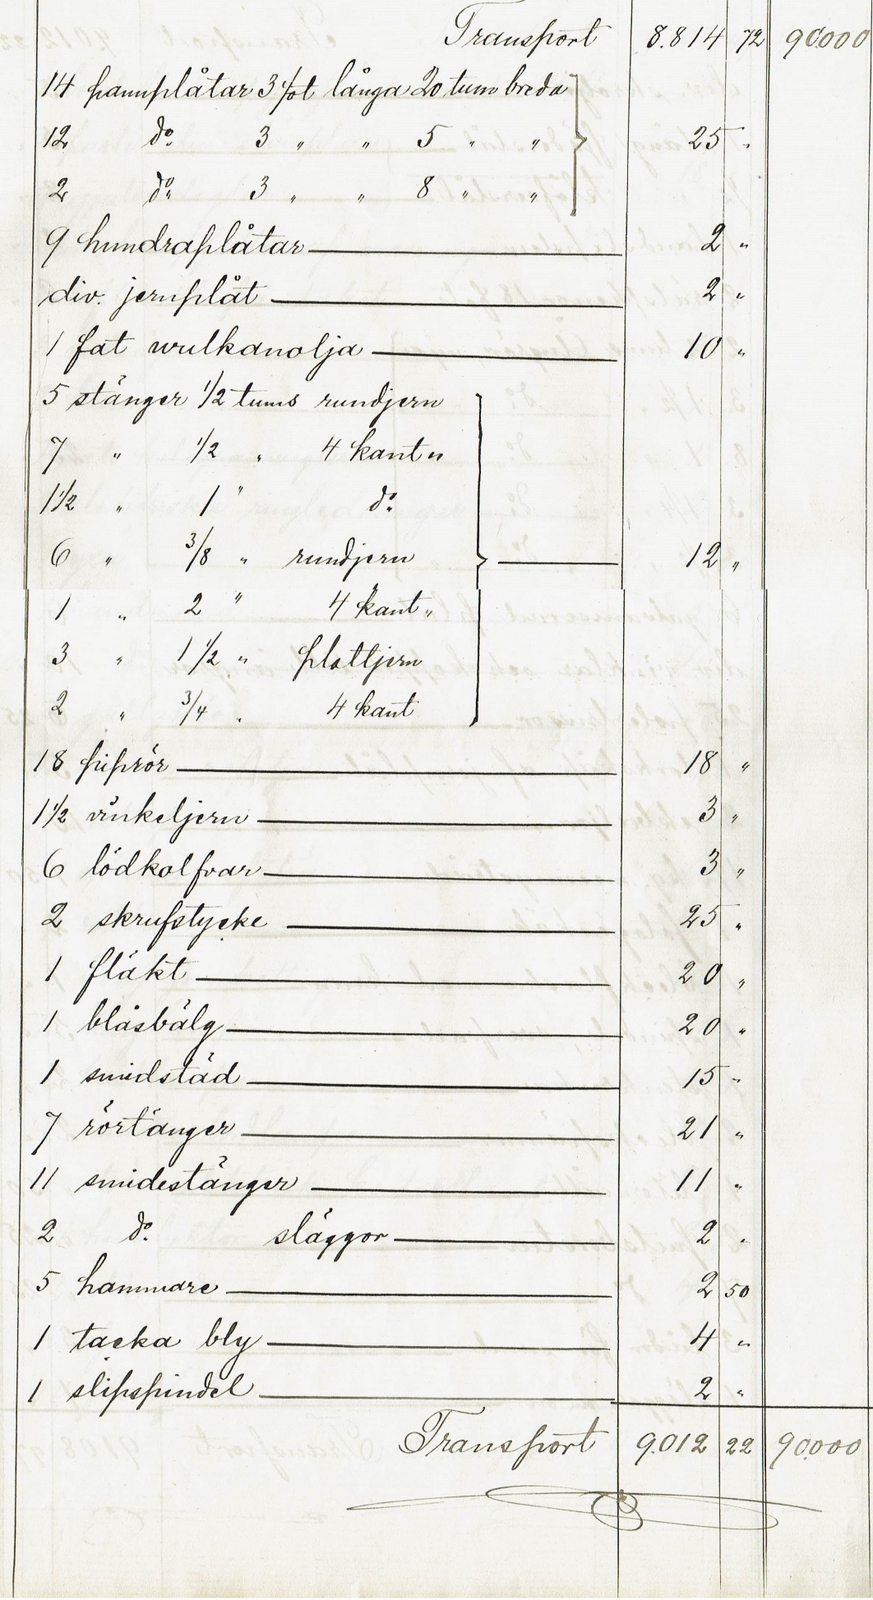 Transport 8.814 72 90000
14 pannplåtar 3 fot långa 20 tum breda
12 do 3 " " 5 " " 25 "
2 do 3 " " 8 " "
9 hundraplåtar 2 "
div. jernplåt 2 "
1 fat wulkanolja 10 "
5 stänger 1/2 tums rundjern
7 " 1/2 " 4 kant "
1 1/2 " 1 " do
6 " 3/8 " rundjern 12 "
1 " 2 " 4 kant "
3 " 1 1/2 " plattjern
2 " 3/4 " 4 kant
18 piprör 18 "
1 1/2 vinkeljern 3 "
6 lödkolfvar 3 "
2 skrufstycke 25 "
1 fläkt 20 "
1 blåsbälg 20 "
1 smidstäd 15 "
7 rörtänger 21 "
11 smidestänger 11 "
2 do släggor 2 "
5 hammare 2 50
1 tacka bly 4 "
1 slipspindel 2 "
Transport 9.012 22 90.000